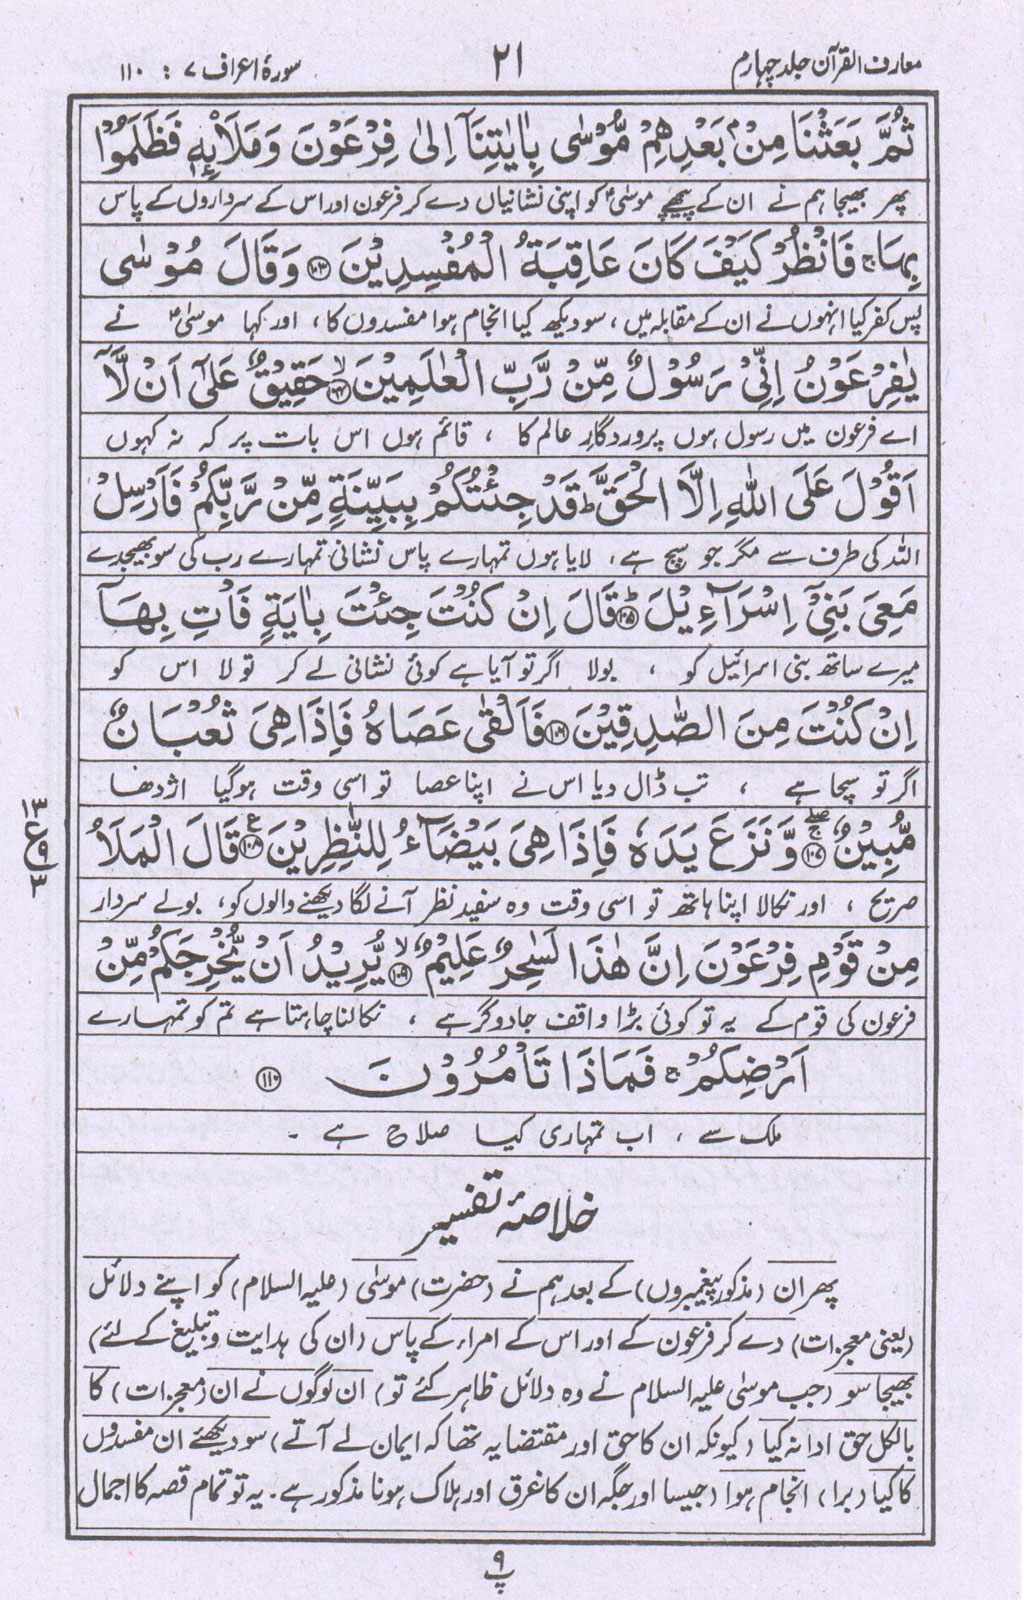 معارف القرآن جلد چہارم
۲۱
سورۂ اعراف ۷ : ۱۱۰
ثُمَّ بَعَثْنَا مِنْۢ بَعْدِهِمْ مُّوْسٰى بِاٰيٰتِنَآ اِلٰى فِرْعَوْنَ وَمَلَا۟ئِهٖ فَظَلَمُوْا
پھر بھیجا ہم نے ان کے پیچھے موسیٰؑ کو اپنی نشانیاں دے کر فرعون اور اس کے سرداروں کے پاس
بِهَا ۚ فَانْظُرْ كَيْفَ كَانَ عَاقِبَةُ الْمُفْسِدِيْنَ ﴿۱۰۳﴾ وَقَالَ مُوْسٰى
پس کفر کیا انہوں نے ان کے مقابلہ میں، سو دیکھ کیا انجام ہوا مفسدوں کا، اور کہا موسیٰؑ نے
يٰفِرْعَوْنُ اِنِّىْ رَسُوْلٌ مِّنْ رَّبِّ الْعٰلَمِيْنَ ۙ﴿۱۰۴﴾ حَقِيْقٌ عَلٰٓى اَنْ لَّآ
اے فرعون میں رسول ہوں پروردگار عالم کا ، قائم ہوں اس بات پر کہ نہ کہوں
اَقُوْلَ عَلَى اللّٰهِ اِلَّا الْحَقَّ ؕ قَدْ جِئْتُكُمْ بِبَيِّنَةٍ مِّنْ رَّبِّكُمْ فَاَرْسِلْ
اللہ کی طرف سے مگر جو سچ ہے، لایا ہوں تمہارے پاس نشانی تمہارے رب کی سو بھیجدے
مَعِىَ بَنِىْٓ اِسْرَآءِيْلَ ؕ﴿۱۰۵﴾ قَالَ اِنْ كُنْتَ جِئْتَ بِاٰيَةٍ فَاْتِ بِهَآ
میرے ساتھ بنی اسرائیل کو ، بولا اگر تو آیا ہے کوئی نشانی لے کر تو لا اس کو
اِنْ كُنْتَ مِنَ الصّٰدِقِيْنَ ﴿۱۰۶﴾ فَاَلْقٰى عَصَاهُ فَاِذَا هِىَ ثُعْبَانٌ
اگر تو سچا ہے ، تب ڈال دیا اس نے اپنا عصا تو اسی وقت ہو گیا اژدھا
مُّبِيْنٌ ۚۖ﴿۱۰۷﴾ وَّنَزَعَ يَدَهٗ فَاِذَا هِىَ بَيْضَآءُ لِلنّٰظِرِيْنَ ﴿۱۰۸﴾ؒ قَالَ الْمَلَاُ
۱۳ ع ۹ ۳
صریح ، اور نکالا اپنا ہاتھ تو اسی وقت وہ سفید نظر آنے لگا دیکھنے والوں کو، بولے سردار
مِنْ قَوْمِ فِرْعَوْنَ اِنَّ هٰذَا لَسٰحِرٌ عَلِيْمٌ ۙ﴿۱۰۹﴾ يُّرِيْدُ اَنْ يُّخْرِجَكُمْ مِّنْ
فرعون کی قوم کے یہ تو کوئی بڑا واقف جادوگر ہے ، نکالنا چاہتا ہے تم کو تمہارے
اَرْضِكُمْ ۚ فَمَاذَا تَاْمُرُوْنَ ﴿۱۱۰﴾
ملک سے ، اب تمہاری کیا صلاح ہے ۔
خلاصۂ تفسیر
پھر ان (مذکور پیغمبروں) کے بعد ہم نے (حضرت) موسٰی (علیہ السلام) کو اپنے دلائل
(یعنی معجزات) دے کر فرعون کے اور اس کے امراء کے پاس (ان کی ہدایت و تبلیغ کے لئے)
بھیجا سو (جب موسیٰ علیہ السلام نے وہ دلائل ظاہر کئے تو) ان لوگوں نے ان (معجزات) کا
بالکل حق ادا نہ کیا (کیونکہ ان کا حق اور مقتضا یہ تھا کہ ایمان لے آتے) سو دیکھئے ان مفسدوں
کا کیا (برا) انجام ہوا (جیسا اور جگہ ان کا غرق اور ہلاک ہونا مذکور ہے۔ یہ تو تمام قصہ کا اجمال
پ ۹